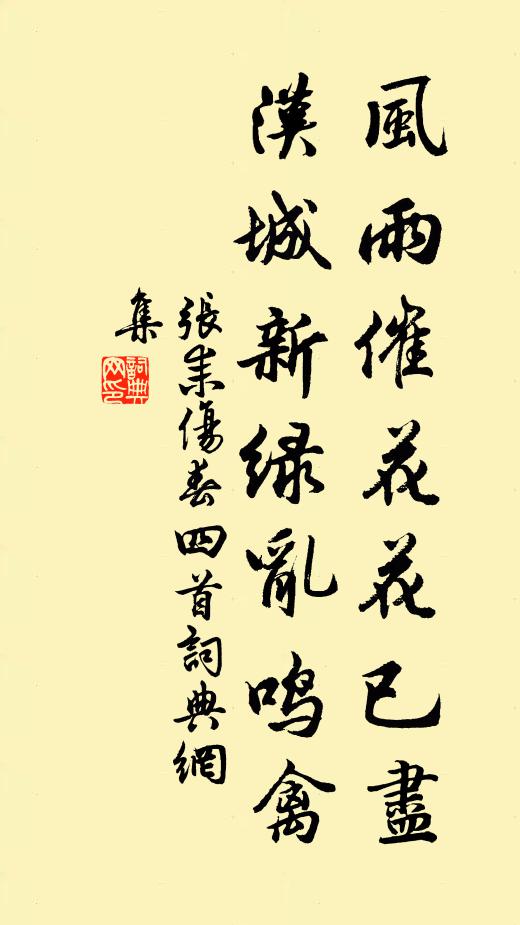 風雨催花花已盡
漢城新绿亂鸣禽
張耒傷春四首詞典網
集
詞典网印